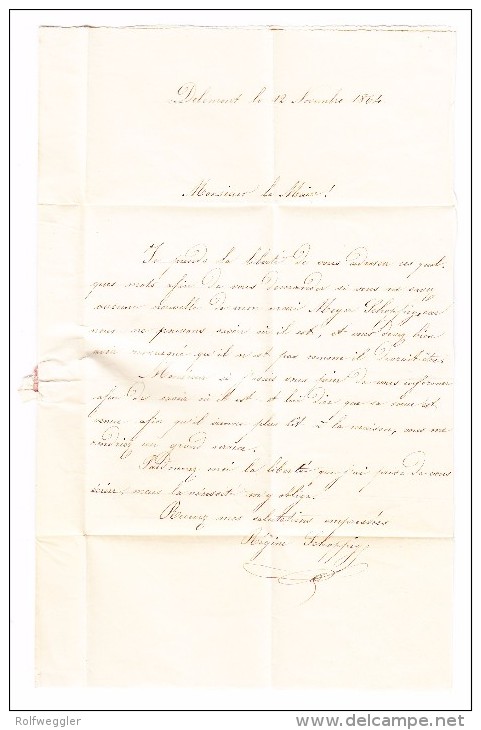 Delemont le 12 Novembre 1864
Monsieur le Maire!
Je prends la liberté de vous adresser ces quel-
ques mots afin de vous demander si vous ne savez
aucune nouvelle de mon mari Schoppig car
nous ne pouvons savoir où il est, et vous
qu'il n'est pas comme il devrait être.
Monsieur si j'osais vous de vous informer
afin de savoir où il est et lui dire que sa est
venue afin qu'il vienne plus tôt à la maison, vous me
rendriez un grand service.
Pardonnez moi la liberté que j'ai prise de vous
écrire, mais la nécessité m'y oblige.
Recevez mes salutations empressées
Régine Schoppig
Rolfweggler
delcampe.net